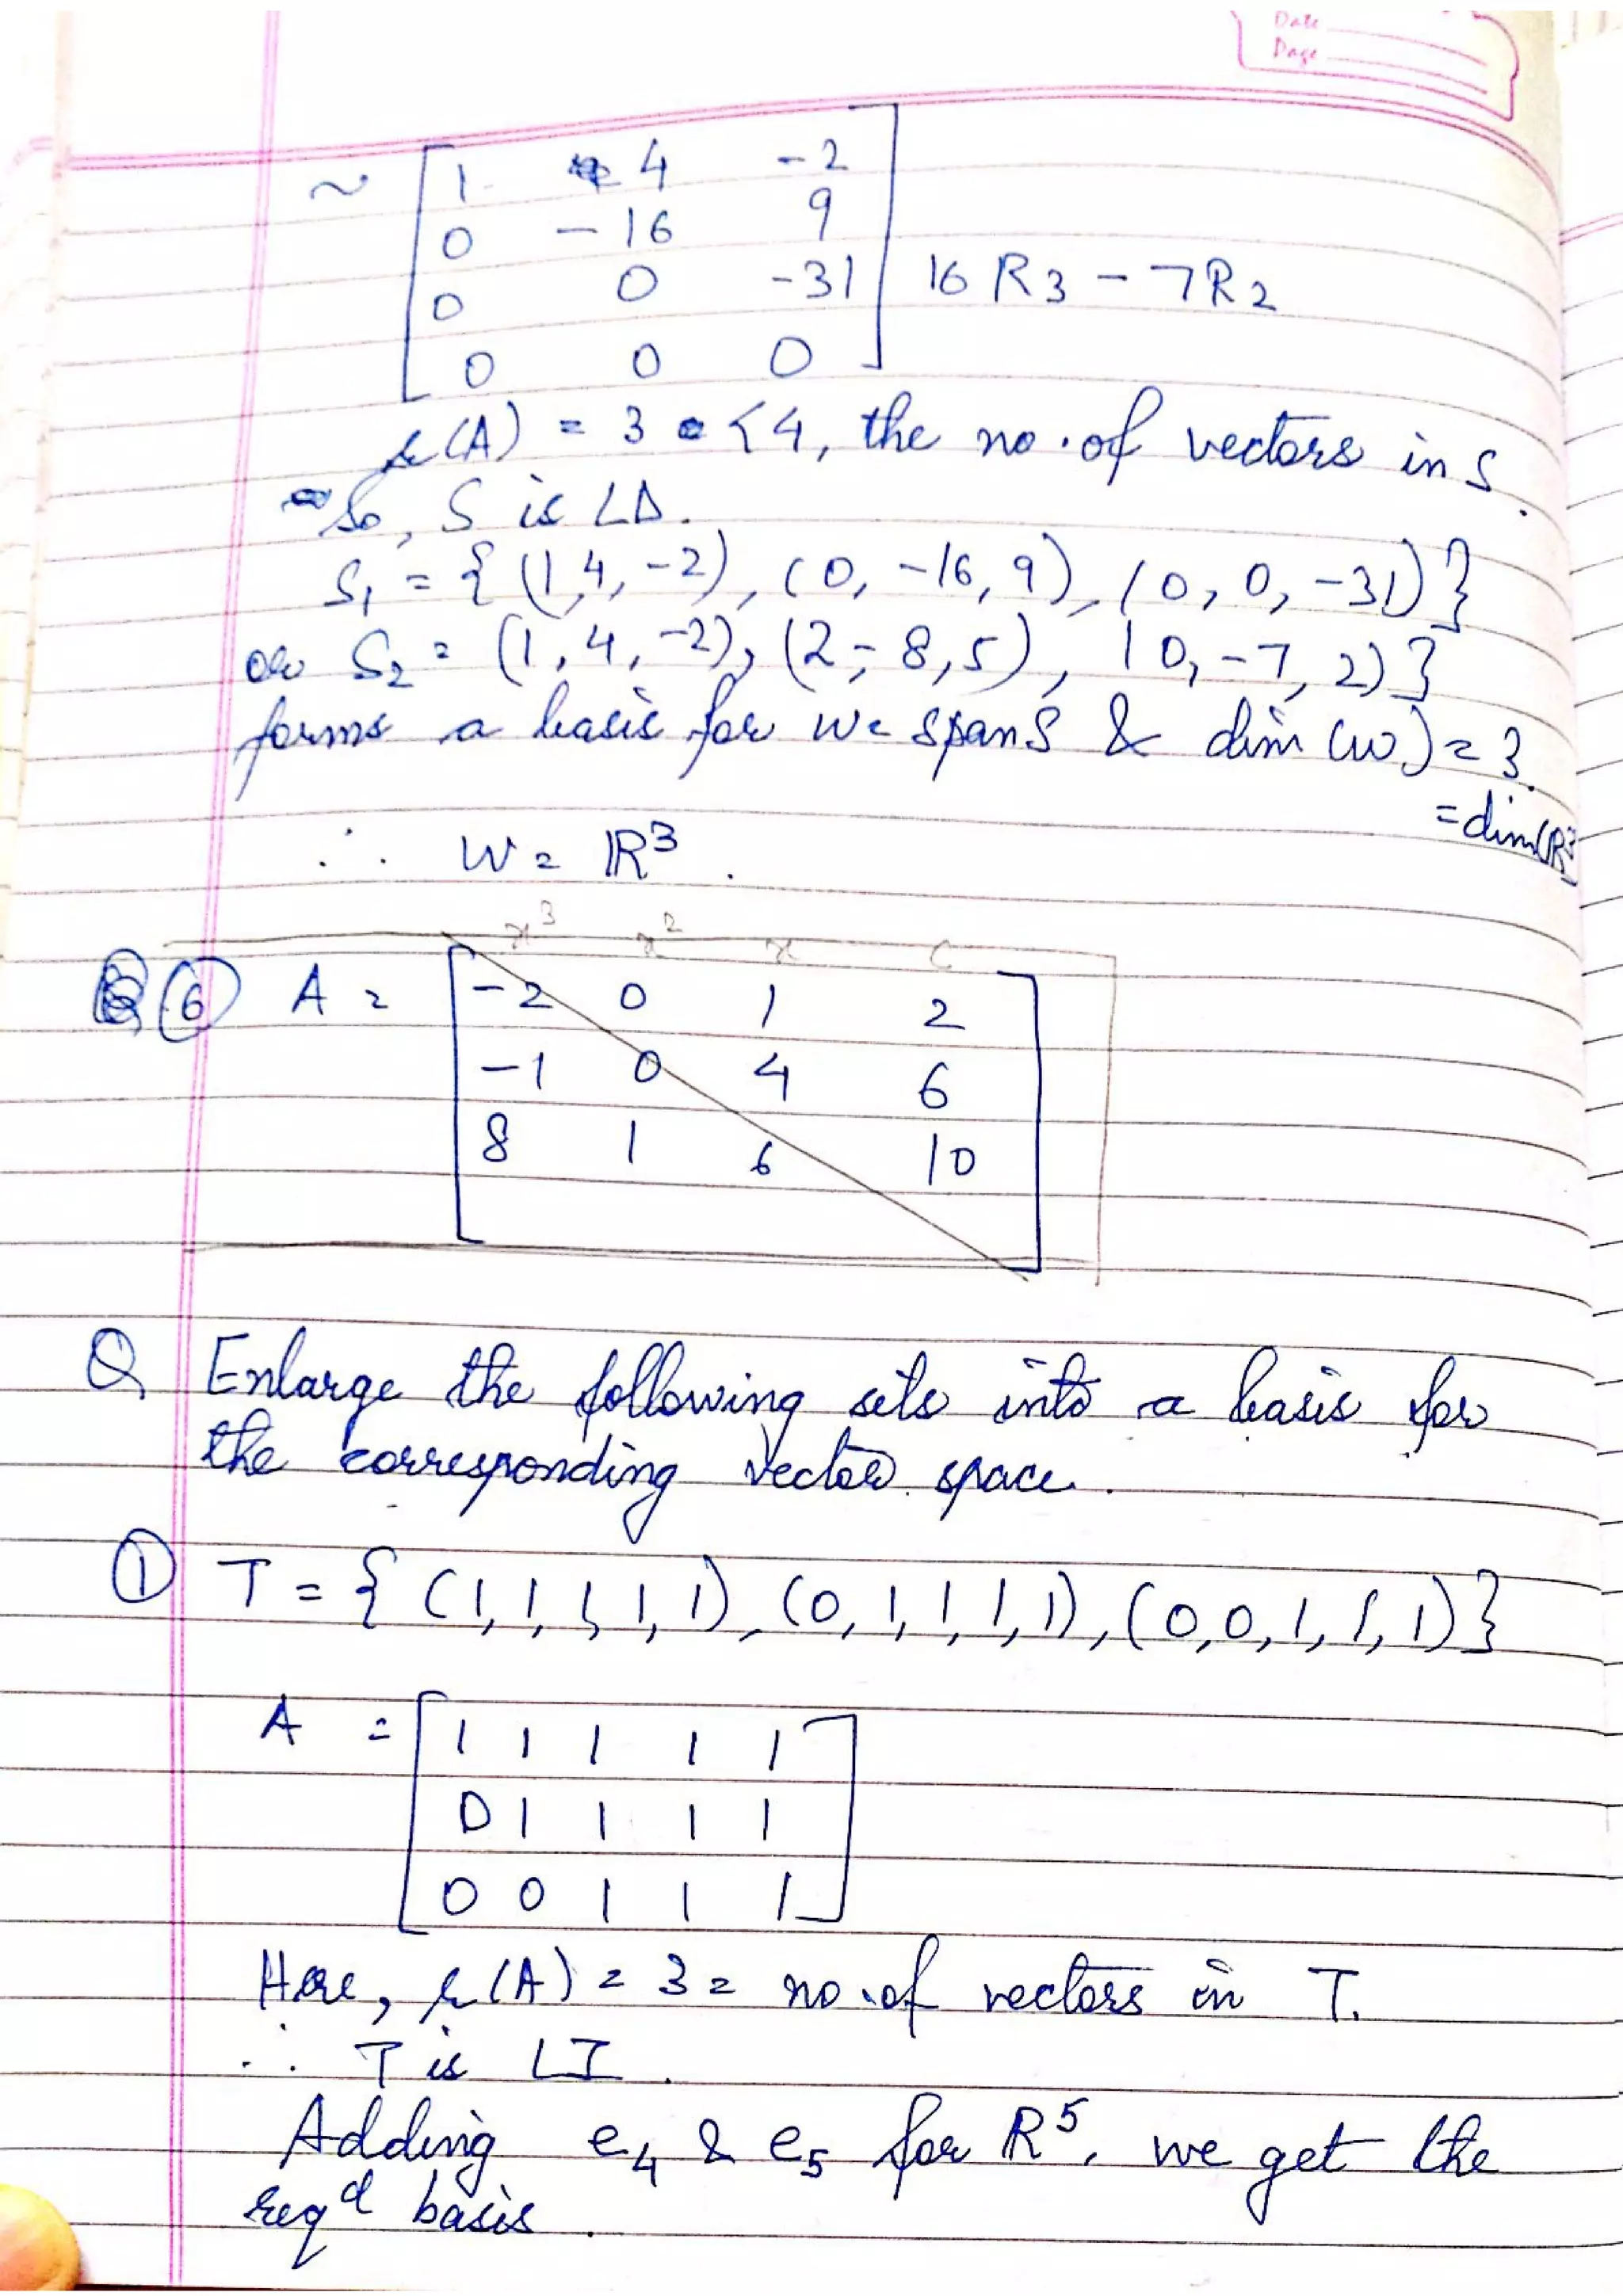 Date
Page
~ [ 1 4 -2
0 -16 9
0 0 -31 ] 16 R3 - 7R2
0 0 0
r(A) = 3 < 4, the no. of vectors in S.
So, S is LD.
S1 = { (1,4,-2), (0,-16,9), (0,0,-31) }
or S2 = (1,4,-2), (2,-8,5), (0,-7,2) }
forms a basis for W = span S & dim (W) = 3.
= dim(R3
∴ W = R3.
x3 x2 x c
6 A = [ -2 0 1 2
-1 0 4 6
8 1 6 10 ]
Q Enlarge the following sets into a basis for
the corresponding vector space.
1 T = { (1,1,1,1,1), (0,1,1,1,1), (0,0,1,1,1) }
A = [ 1 1 1 1 1
0 1 1 1 1
0 0 1 1 1 ]
Here, r(A) = 3 = no. of vectors in T.
∴ T is LI.
Adding e4 & e5 for R5, we get the
reqd basis.